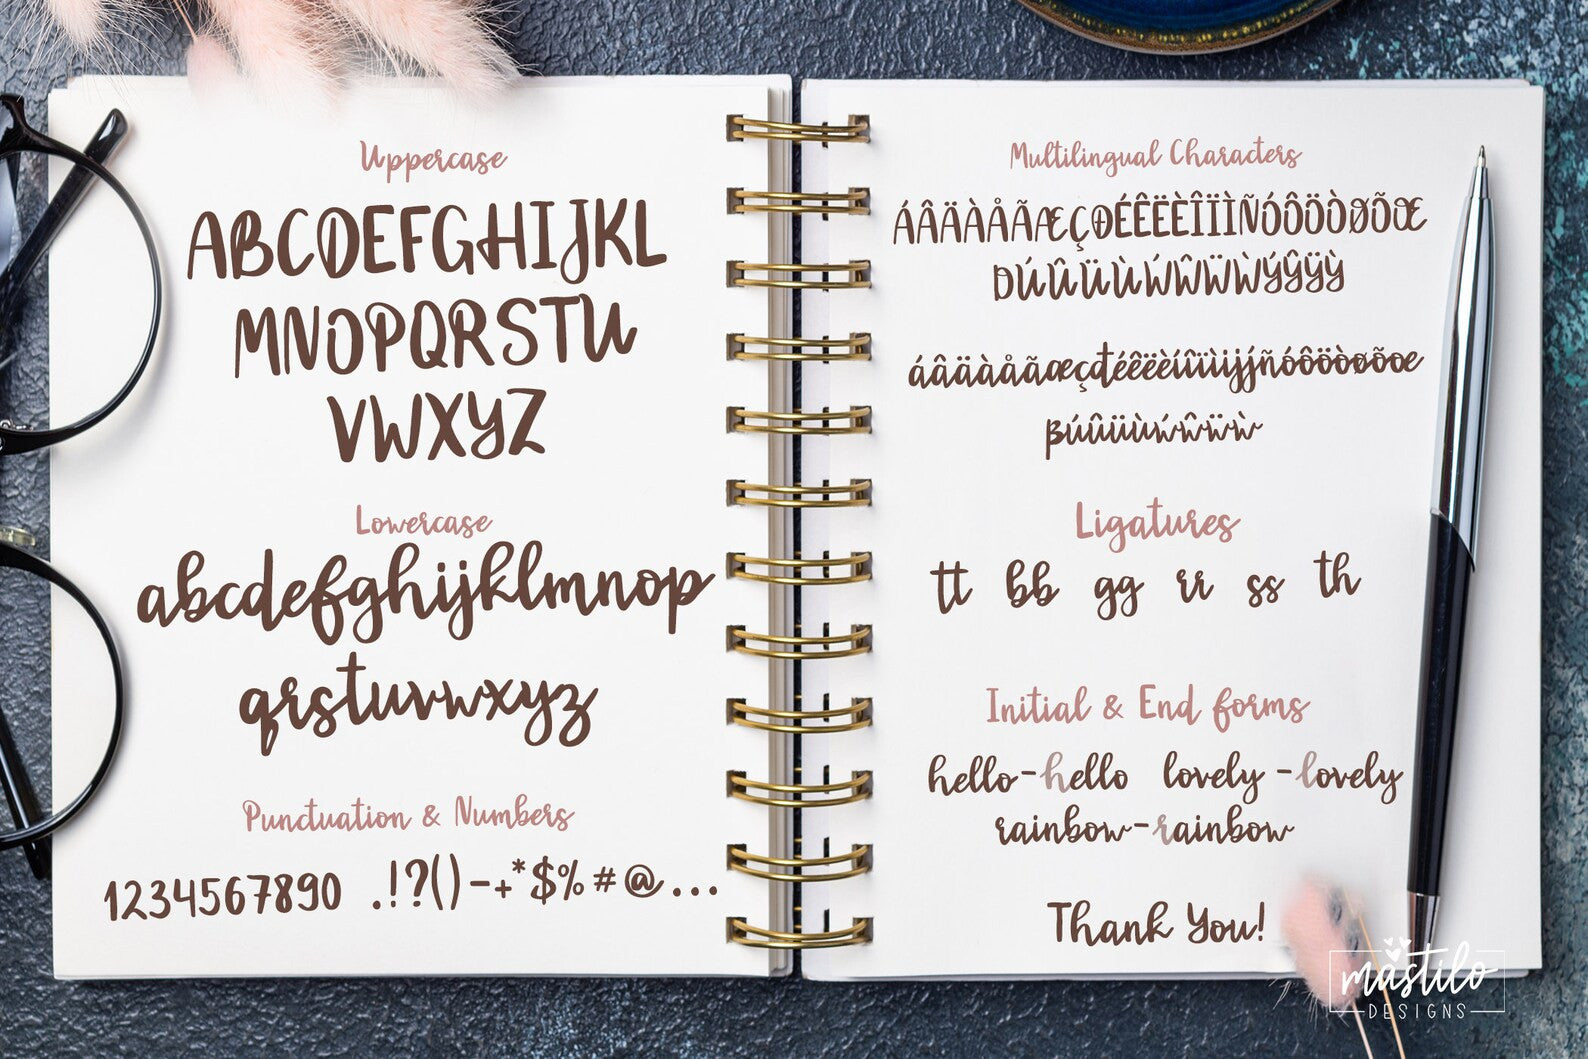 Uppercase
ABCDEFGHIJKL
MNOPQRSTU
VWXYZ
Lowercase
abcdefghijklmnop
qrstuvwxyz
Punctuation & Numbers
1234567890 .!?()-+*$%#@...
Multilingual Characters
ÁÂÄÀÅÃÆÇÐÉÊËÈÍÎÏÌÑÓÔÖÒØÕŒ
ÐÚÛÜÙẂŴẄẀÝŶŸỲ
áâäàåãæçđéêëèíîïìijíj́ñóôöòøõœ
ßúûüùẃŵẅẁ
Ligatures
tt bb gg rr ss th
Initial & End forms
hello-hello lovely-lovely
rainbow-rainbow
Thank You!
mastilo
DESIGNS